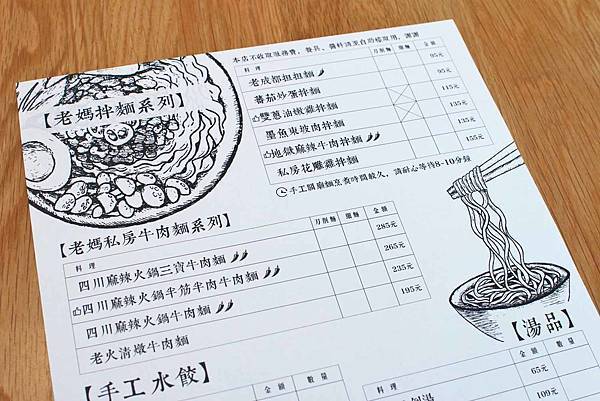 本店不收取服務費，餐具、醬料請至自助檯取用，謝謝
【老媽拌麵系列】
料理 月削麵 關廟麵 金額
老成都担担麵 95元
蕃茄炒蛋拌麵 95元
雙蔥油嫩雞拌麵 115元
墨魚東坡肉拌麵 135元
地獄麻辣牛肉拌麵 135元
私房花雕雞拌麵 155元
手工關廟麵烹煮時間較久，請耐心等待8-10分鐘
【老媽私房牛肉麵系列】
料理 月削麵 金額
四川麻辣火鍋三寶牛肉麵 285元
四川麻辣火鍋半筋半肉牛肉麵 265元
四川麻辣火鍋牛肉麵 235元
老火清燉牛肉麵 195元
【手工水餃】
金額 數量
【湯品】
料理 金額 數量
65元
109元